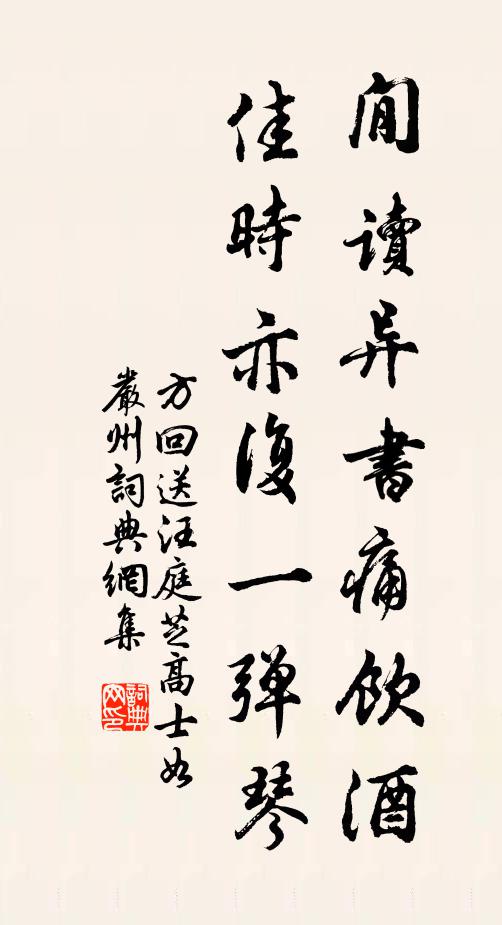 閒讀异書痛飲酒
佳時亦復一弹琴
方回送汪庭芝高士如
嚴州詞典網集
詞典
网印